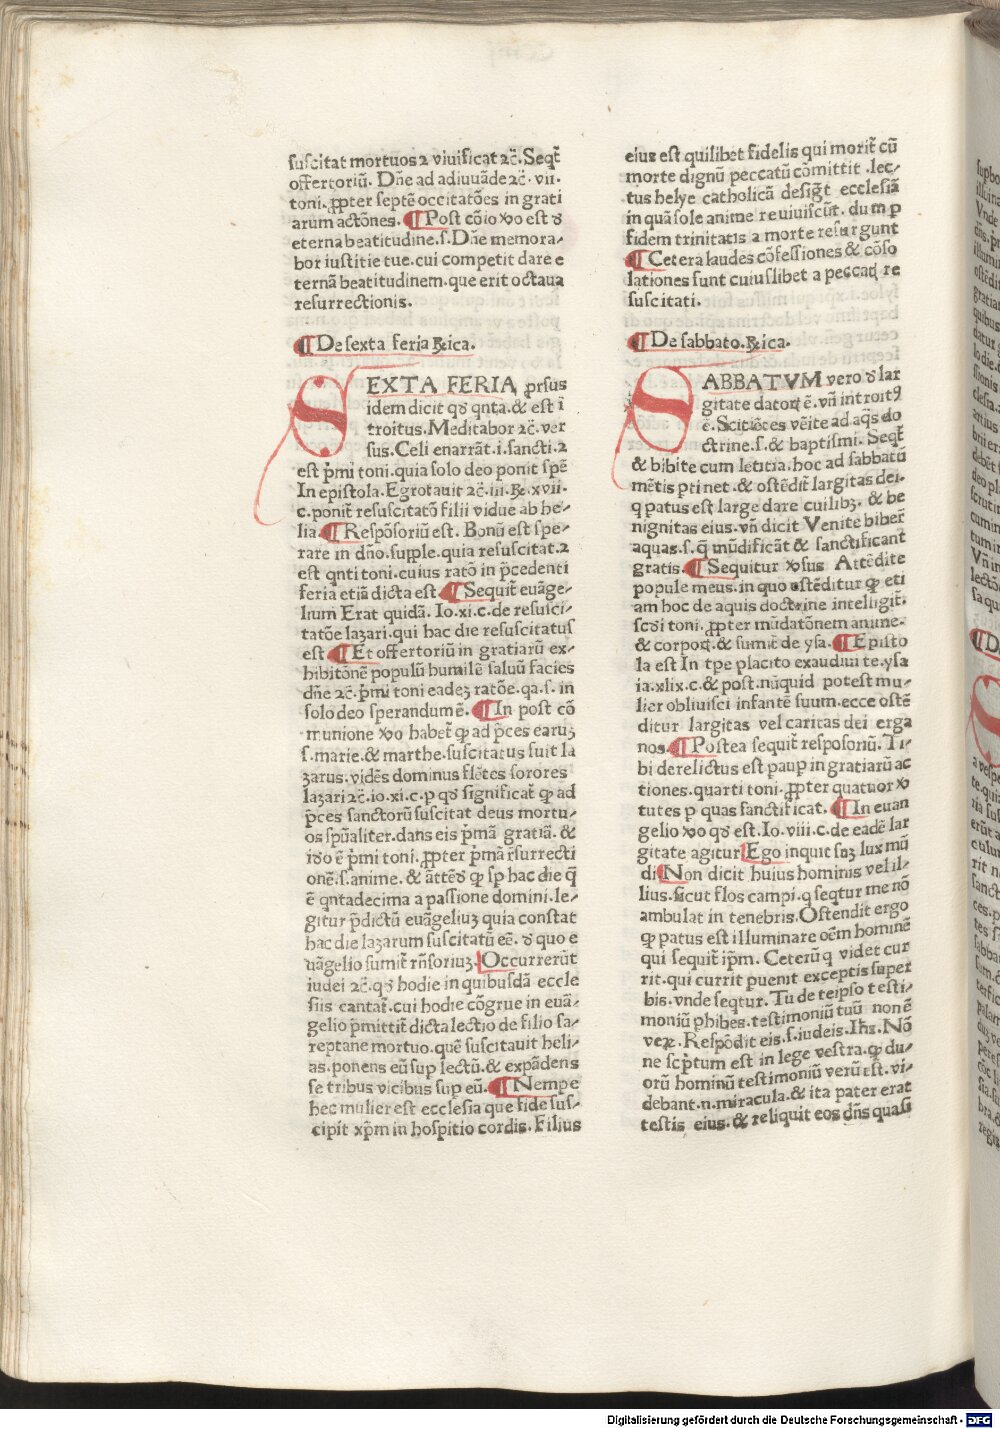 suscitat mortuos ⁊ viuificat ⁊c̄. Seqt̄
offertoriū. Dn̄e ad adiuuāde ⁊c̄. vii.
toni. ꝓpter septē occitatōes in grati
arum actōnes. ¶ Post cōio ꝟo est ꝺ
eterna beatitudine. s. Dn̄e memora⸗
bor iustitie tue. cui competit dare e
ternā beatitudinem. que erit octaua
resurrectionis.
¶ De sexta feria ℞ica.
SEXTA FERIA ꝓrsus
idem dicit qꝺ qnta. & est ī
troitus. Meditabor ⁊c̄. ver
sus. Celi enarrāt. i. sancti. ⁊
est p̄mi toni. quia solo deo ponit spē
In epistola. Egrotauit ⁊c̄. iii. ℞. xvii.
c. ponit̄ resuscitatō filii vidue ab he⸗
lia. ¶ Respōsoriū est. Bonū est spe⸗
rare in dn̄o. supple. quia resuscitat. ⁊
est qnti toni. cuius ratō in p̄cedenti
feria etiā dicta est ¶ Sequit̄ euāge⸗
lium Erat quidā. Io. xi. c. de resusci⸗
tatōe lazari. qui hac die resuscitatus
est ¶ Et offertoriū in gratiarū ex⸗
hibitōnē populū humilē saluū facies
dn̄e ⁊c̄. p̄mi toni eadeꝫ ratōe. qa. s. in
solo deo sperandum ē. ¶ In post cō
munione ꝟo habet̄ ꝙ ad p̄ces earuꝫ
s. marie. & marthe. suscitatus fuit la
zarus. vidēs dominus flētes sorores
lazari ⁊c̄. io. xi. c. p qꝺ significat̄ ꝙ ad
p̄ces sanctorū suscitat deus mortu⸗
os spūaliter. dans eis p̄mā gratiā. &
iꝺo ē p̄mi toni. ꝓpter p̄mā r̄surrecti
onē. s. anime. & āttēꝺ ꝙ sp hac die q̄
ē qntadecima a passione domini. le⸗
gitur p̄dictū euāgeliuꝫ quia constat
hac die lazarum suscitatū eē. ꝺ quo e
uāgelio sumit̄ rn̄soriuꝫ. Occurrerūt
iudei ⁊c̄. qꝺ hodie in quibusdā eccle
siis cantat̄. cui hodie cōgrue in euā⸗
gelio p̄mittit̄ dicta lectio de filio sa⸗
reptane mortuo. quē suscitauit heli⸗
as. ponens eū sup lectū. & expādens
se tribus vicibus sup eū. ¶ Nempe
hec mulier est ecclesia que fide sus⸗
cipit xp̄m in hospitio cordis. Filius
eius est quilibet fidelis qui morit̄ cū
morte dignū peccatū cōmittit. lec⸗
tus helye catholicā desigt̄ ecclesiā
in qua sole anime reuiuiscūt. dum p
fidem trinitatis a morte resurgunt
¶ Cetera laudes cōfessiones & cōso
lationes sunt cuiuslibet a peccaꝵ re
suscitati.
¶ De sabbato. ℞ica.
SABBATVM vero ꝺ lar
gitate datoꝵ ē. vn̄ introitꝰ
ē. Scitiētes vēite ad aq̄s do
ctrine. s. & baptismi. Seqt̄
& bibite cum leticia. hoc ad sabbatū
mētis ptinet. & ostēdit̄ largitas dei.
q patus est large dare cuilibꝫ. & be
nignitas eius. vn̄ dicit Venite biber̄
aquas. s. q̄ mūdificāt & sanctificant
gratis. ¶ Sequitur ꝟsus Attēdite
popule meus. in quo ostēditur ꝙ eti
am hoc de aquis doctrine intelligit̄.
scꝺi toni. ꝓpter mūdatōnem anime.
& corpoꝵ. & sumit̄ de ysa. ¶ Episto
la est In tpe placito exaudiui te. ysa
ia. xlix. c. & post. nūquid potest mu⸗
lier obliuisci infantē suum. ecce ostē
ditur largitas vel caritas dei erga
nos. ¶ Postea sequit̄ resposoriū. Ti
bi derelictus est paup in gratiarū ac
tiones. quarti toni. ꝓpter quatuor ꝟ
tutes p quas sanctificat. ¶ In euan
gelio ꝟo qꝺ est. Io. viii. c. de eadē lar
gitate agitur Ego inquit suꝫ lux mū
di Non dicit huius hominis vel il⸗
lius. sicut flos campi. q seqtur me nō
ambulat in tenebris. Ostendit ergo
ꝙ patus est illuminare oēm hominē
qui sequit̄ ip̄m. Ceterū q videt cur
rit. qui currit puenit exceptis super
bis. vnde seqtur. Tu de teipso testi⸗
moniū phibes. testimoniū tuū non ē
veꝝ. Respōdit eis. s. iudeis. Ihs. Nō
ne scp̄tum est in lege vestra. ꝙ du⸗
orū hominū testimoniū verū est. vi⸗
debant. n. miracula. & ita pater erat
testis eius. & reliquit eos dn̄s quasi
Digitalisierung gefördert durch die Deutsche Forschungsgemeinschaft - DFG